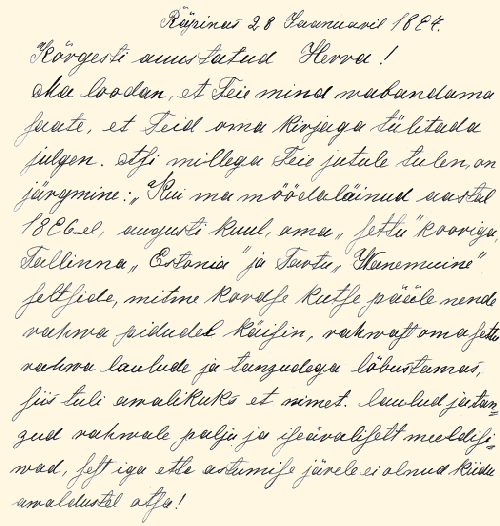 Räpinas 28 Jaanuaril 1897.
Kõrgesti auustatud Herra!
Ma loodan, et Teie mind wabandama
saate, et Teid oma kirjaga tülitada
julgen. Asi millega Teie jutule tulen, on
järgmine: „Kui ma möödaläinud aastal
1896-el, augusti kuul, oma „settu" kooriga,
Tallinna „Estonia" ja Tartu „Wanemuine"
seltside, mitme kordse kutse pääle nende
rahwa pidudel käisin, rahwast oma settu
rahwa laulude ja tanzudega lõbustamas,
siis tuli awalikuks et nimet. laulud ja tan=
zud rahwale palju ja iseäralikselt meeldisi=
wad, sest iga ette astumise järele ei olnud kiidu
awaldustel otsa!